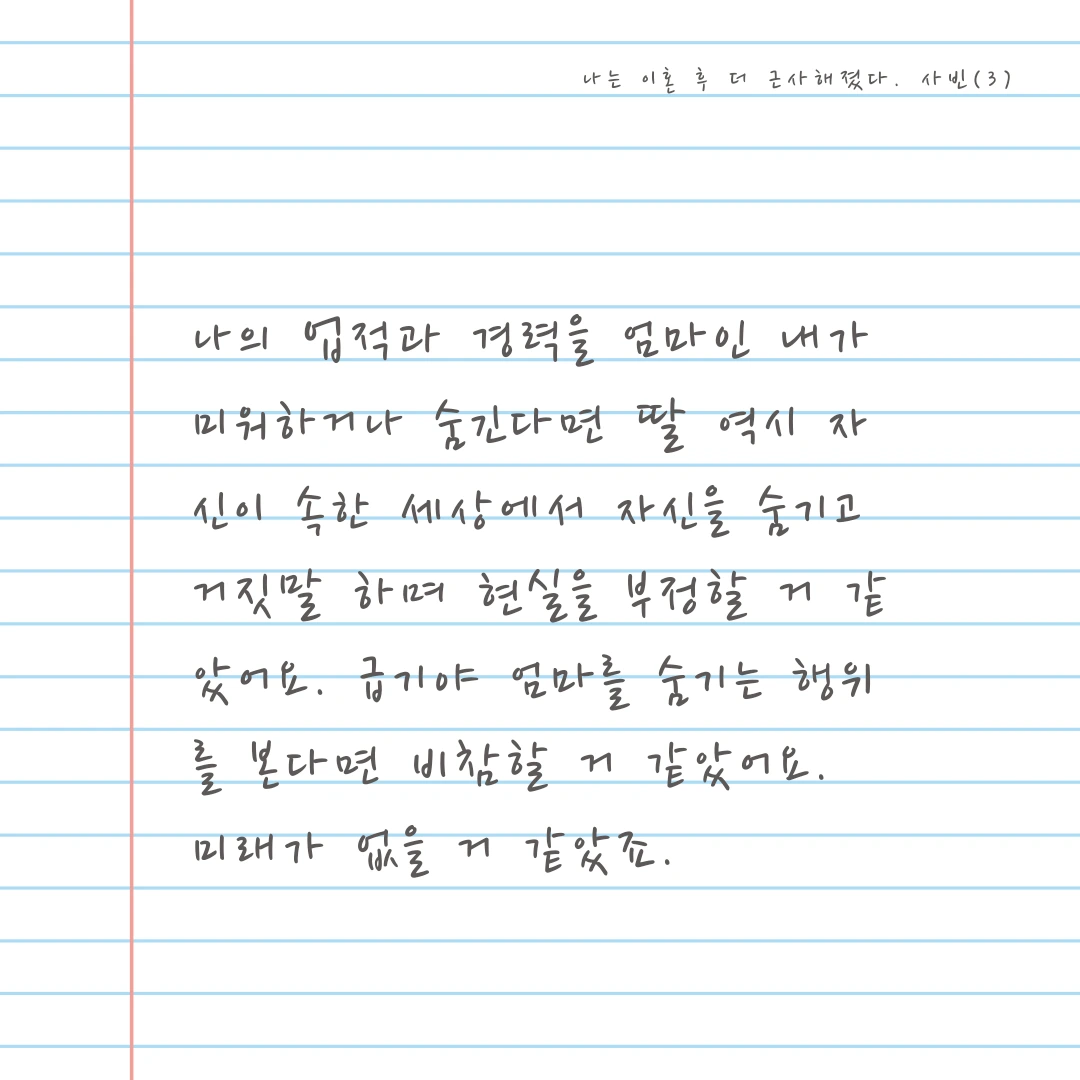 나는 이혼 후 더 근사해졌다. 사빈(3)
나의 업적과 경력을 엄마인 내가
미워하거나 숨긴다면 딸 역시 자
신이 속한 세상에서 자신을 숨기고
거짓말 하며 현실을 부정할 거 같
았어요. 급기야 엄마를 숨기는 행위
를 본다면 비참할 거 같았어요.
미래가 없을 거 같았죠.